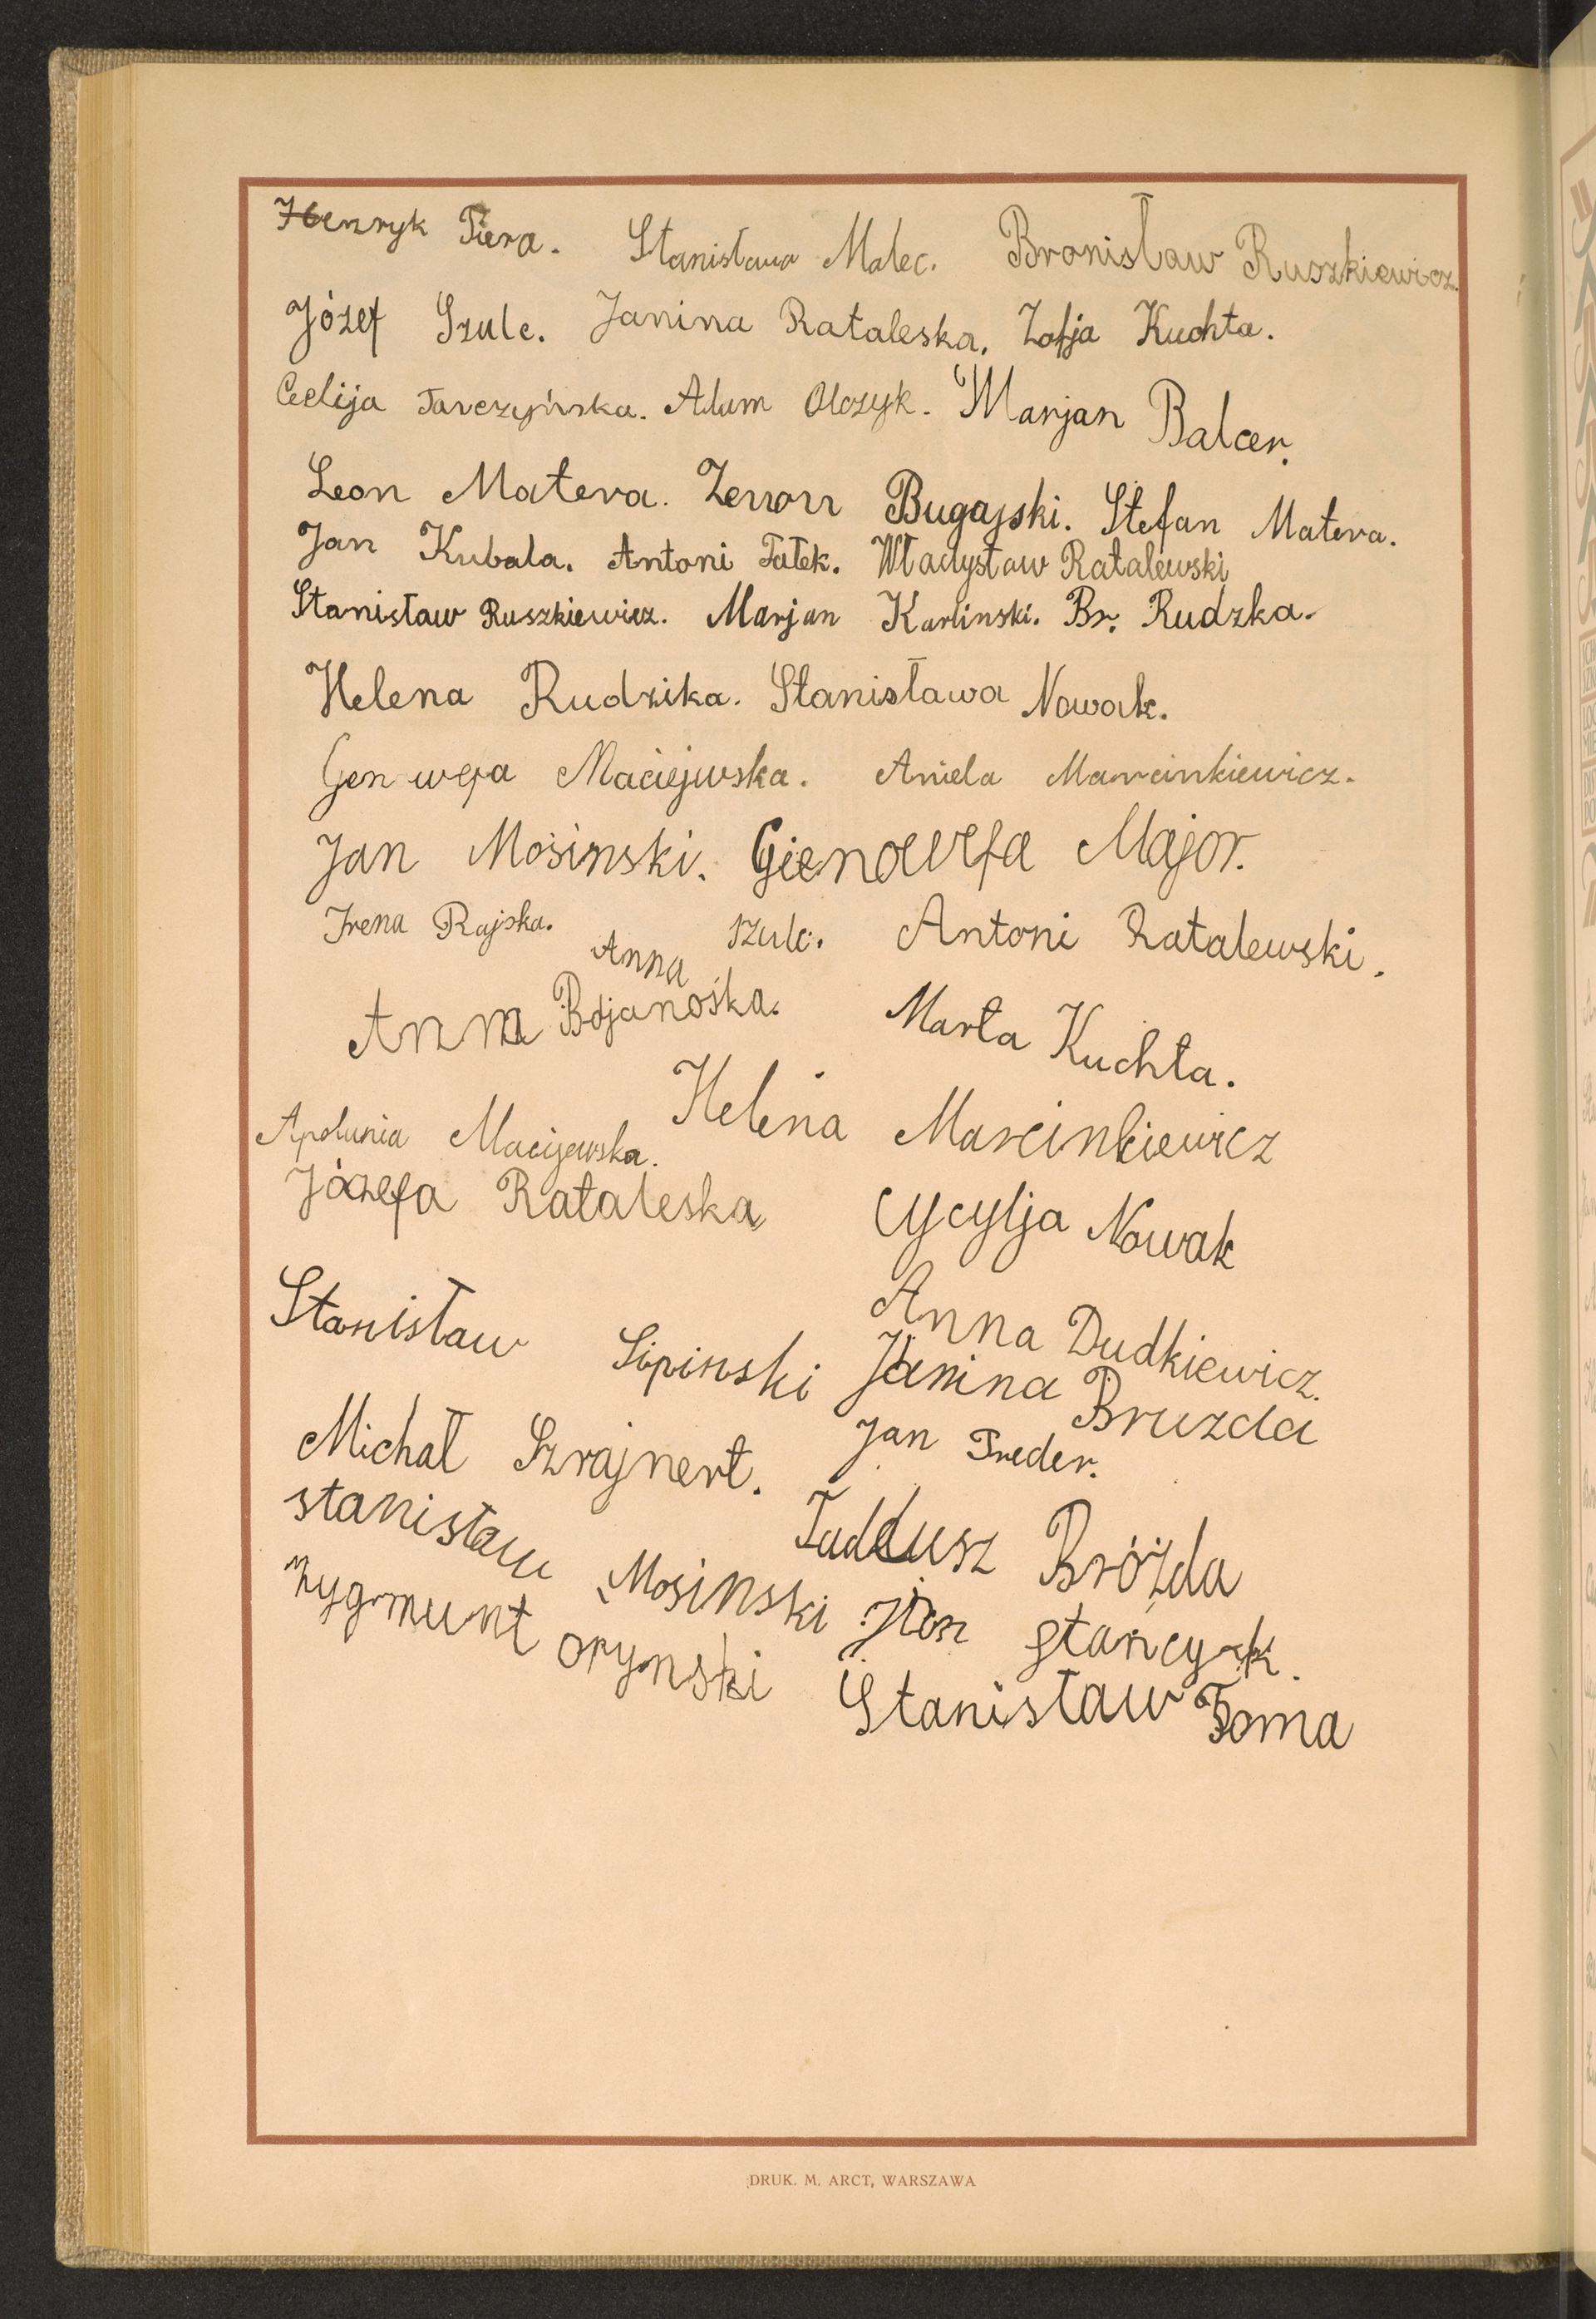 Henryk Tiera. Stanisława Malec. Bronisław Ruszkiewicz.
Józef Szulc. Janina Rataleska. Zofja Kuchta.
Celija Tarczyńska. Adam Olczyk. Marjan Balcer.
Leon Matera. Zenon Bugajski. Stefan Matera.
Jan Kubala. Antoni Fałek. Władysław Ratalewski
Stanisław Ruszkiewicz. Marjan Karlinski. Br. Rudzka.
Helena Rudzika. Stanisława Nowak.
Genwefa Maciejwska. Aniela Marcinkiewicz.
Jan Mosinski. Gienowefa Major.
Irena Rajska. Anna Szulc. Antoni Ratalewski.
Anna Bojanośka. Marta Kuchta.
Helena Marcinkiewicz
Apolunia Macijewska.
Józefa Rataleska Cycylja Nowak
Stanisław Lipinski Anna Dudkiewicz.
Janina Bruzda
Michał Szrajnert. Jan Treder.
Tadeusz Bróżda
stanisław Mosinski Jan stańcyk.
zygmunt orynski Stanisław Toma
DRUK. M. ARCT, WARSZAWA